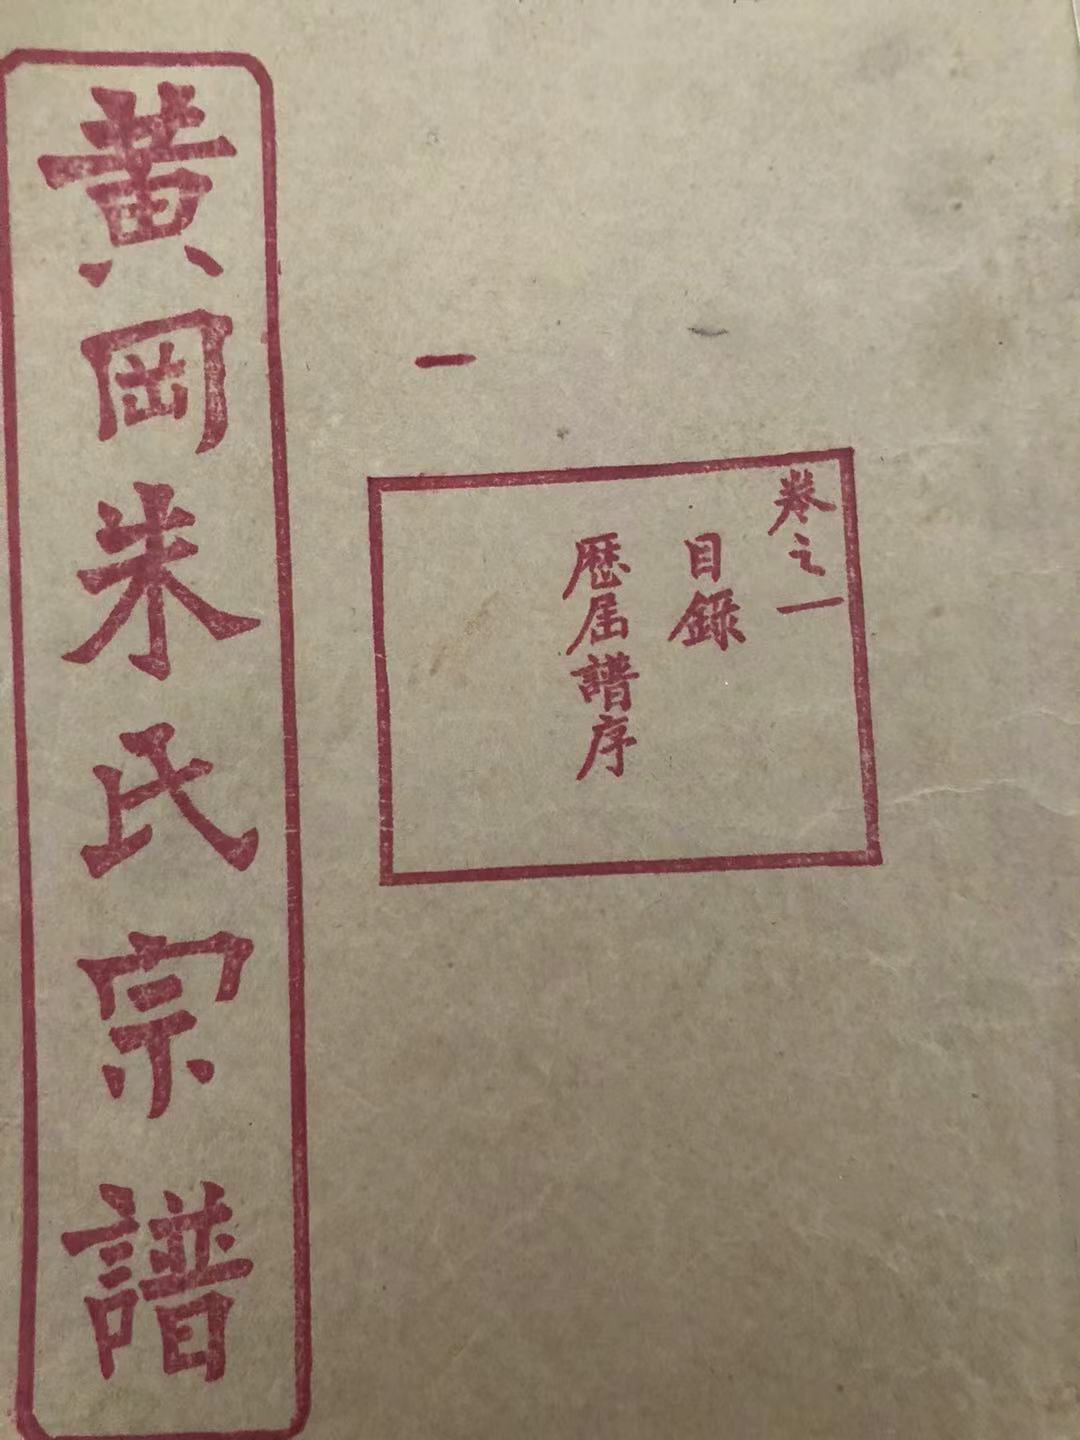 黄岡朱氏宗譜
一
卷之一
目錄
歷屆譜序